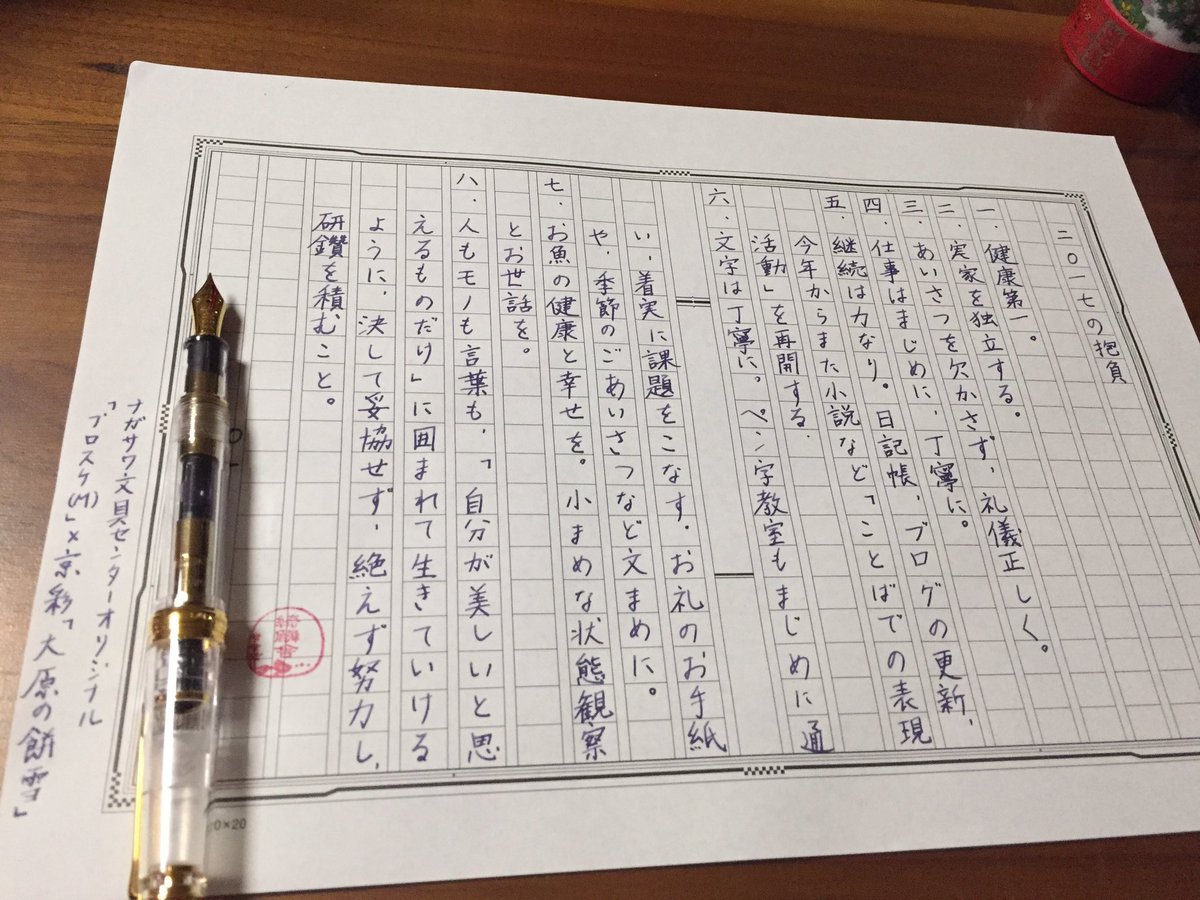 二〇一七の抱負
一、健康第一。
二、実家を独立する。
三、あいさつを欠かさず、礼儀正しく。
四、仕事はまじめに、丁寧に。
五、継続は力なり。日記帳、ブログの更新、
今年からまた小説など「ことばでの表現
活動」を再開する。
六、文字は丁寧に。ペン字教室もまじめに通
い、着実に課題をこなす。お礼のお手紙
や、季節のごあいさつなど文まめに。
七、お魚の健康と幸せを。小まめな状態観察
とお世話を。
八、人もモノも言葉も、「自分が美しいと思
えるものだけ」に囲まれて生きていける
ように、決して妥協せず、絶えず努力し、
研鑽を積むこと。
ナガサワ文具センターオリジナル
「プロスケ(M)」×京彩「大原の餅雪」